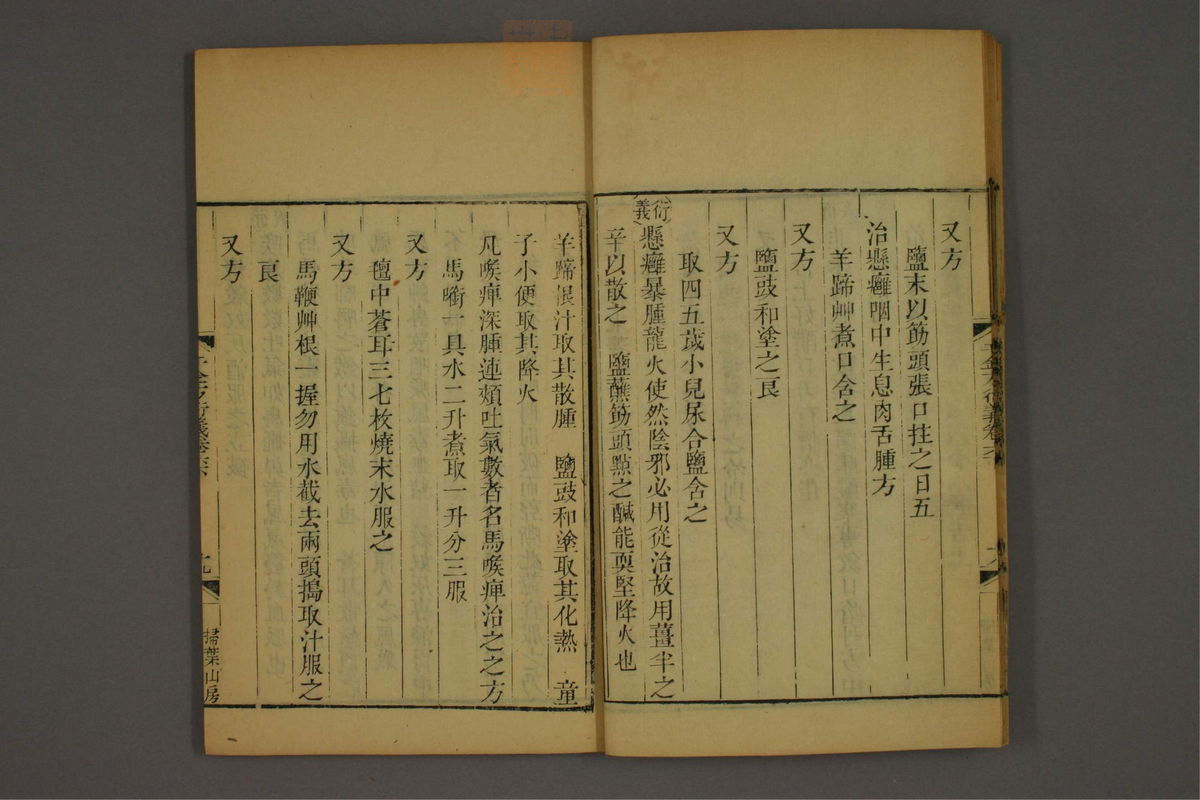 又方
鹽末以筯頭張口拄之日五
治懸癰咽中生息肉舌腫方
羊蹄艸煮口含之
又方
鹽豉和塗之良
又方
取四五歲小兒尿合鹽含之
衍義
懸癰暴腫龍火使然陰邪必用從治故用薑半之
辛以散之 鹽蘸筯頭點之鹹能耎堅降火也
千金方衍義卷六
羊蹄根汁取其散腫 鹽豉和塗取其化熱 童
子小便取其降火
凡喉痺深腫連頰吐氣數者名馬喉痺治之之方
馬銜一具水二升煮取一升分三服
又方
氊中蒼耳三七枚燒末水服之
又方
馬鞭艸根一握勿用水截去兩頭搗取汁服之
良
又方
千金方衍義卷六
九
掃葉山房